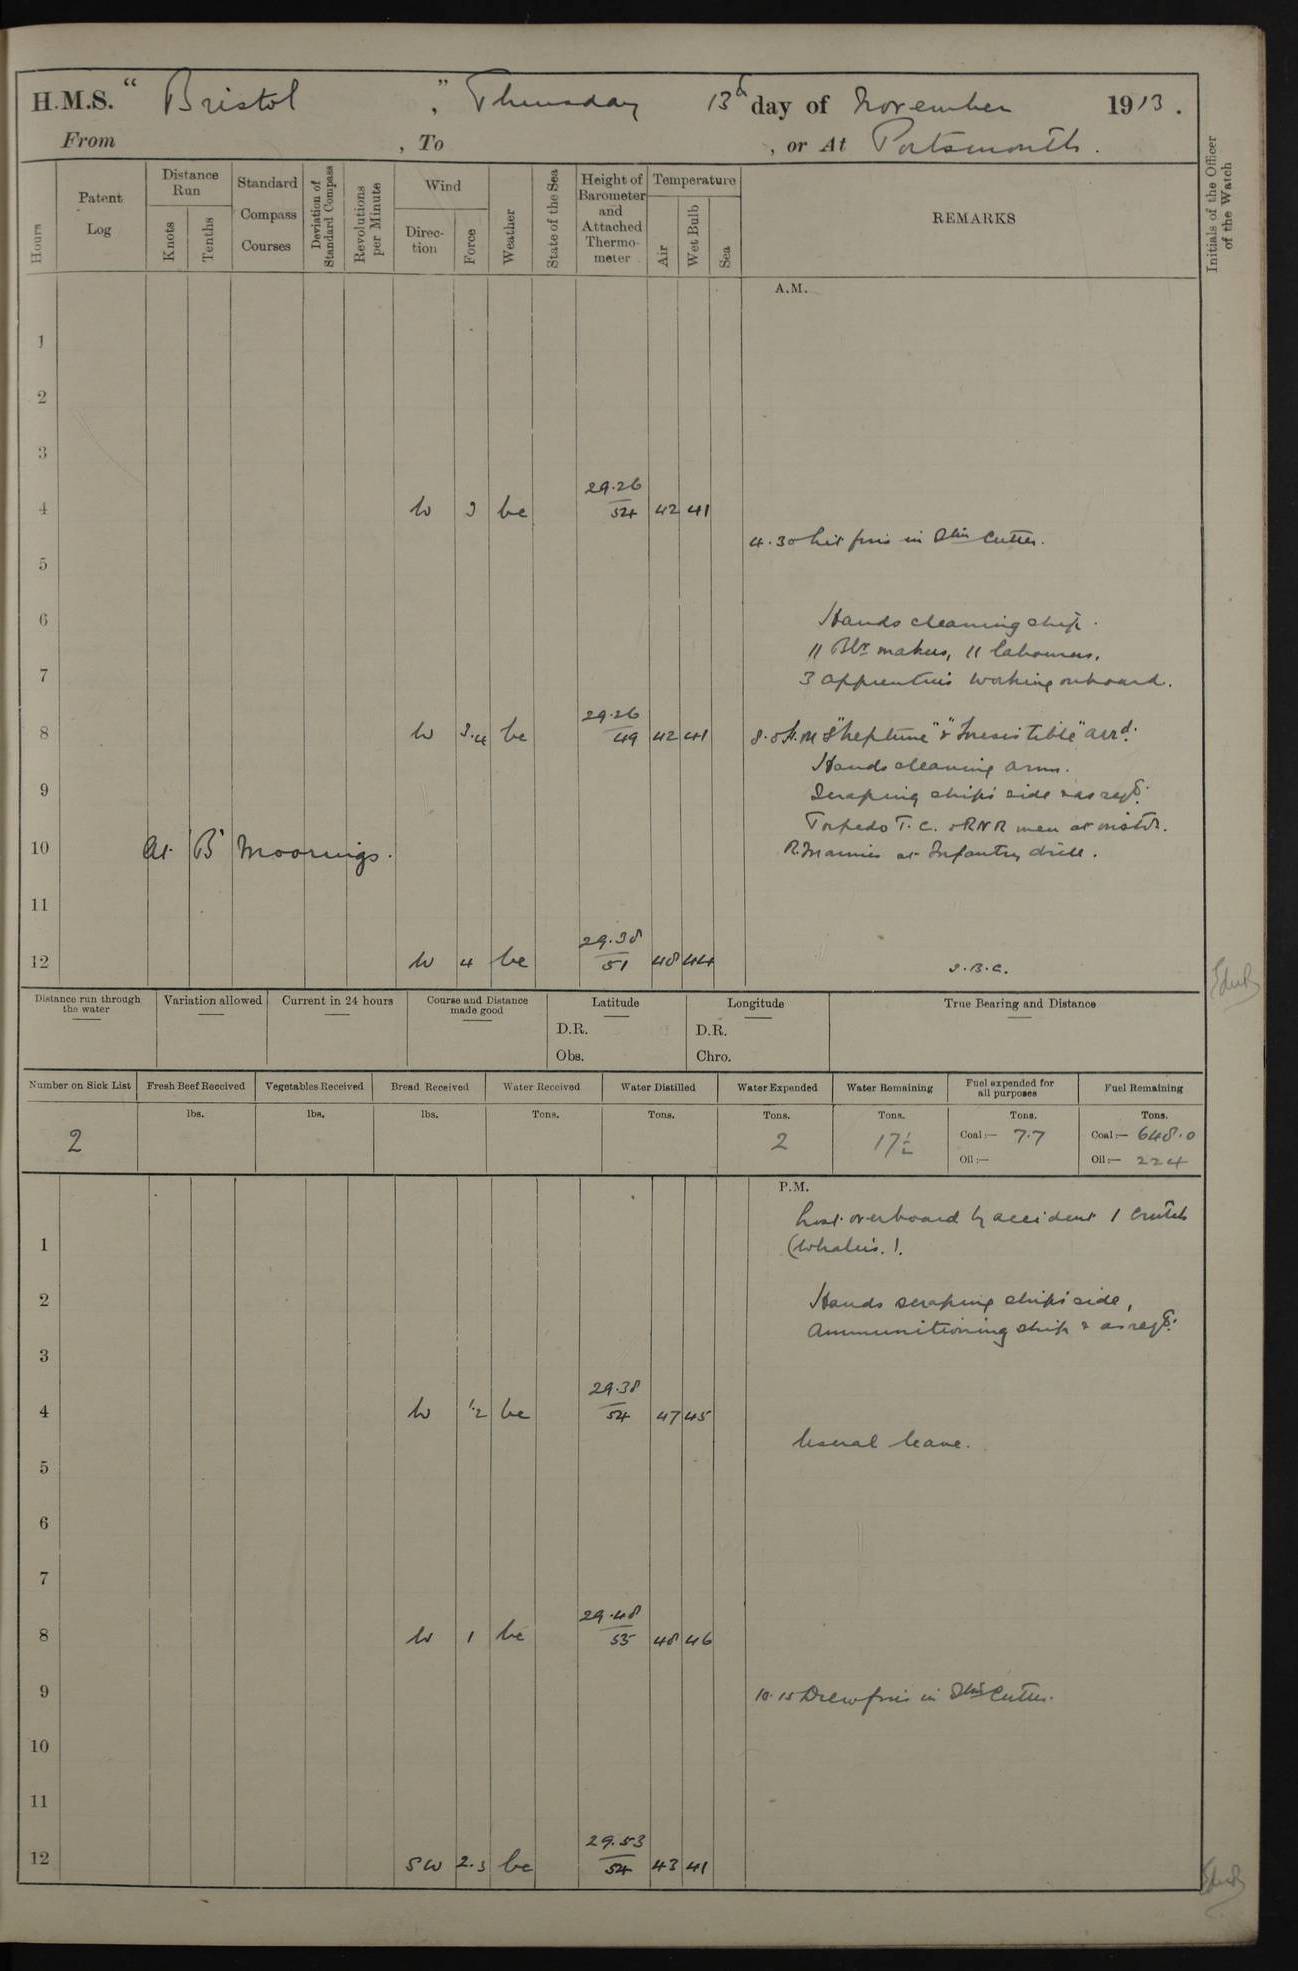 H.M.S. "Bristol", Thursday 13th day of November 1913.
From , To , or At Portsmouth.
Hours
Patent Log
Distance Run
Knots
Tenths
Standard Compass Courses
Deviation of Standard Compass
Revolutions per Minute
Wind
Direction
Force
Weather
State of the Sea
Height of Barometer and Attached Thermometer
Temperature
Air
Wet Bulb
Sea
REMARKS
Initials of the Officer of the Watch
A.M.
1
2
3
4 W 3 bc 29.26/54 42 41
4.30 Lit fires in Stm Cutter.
5
6 Hands cleaning ship.
11 Blr makers, 11 labourers,
7 3 apprentices working onboard.
8 W 3.4 bc 29.26/49 42 41 8.0 H.M.S "Neptune" & "Irresistible" arrd.
Hands cleaning arms.
9 Scraping ships side & as reqd.
Torpedo T.C. & RNR men at instn.
10 At 'B' Moorings. R. Marines at Infantry drill.
11
12 W 4 bc 29.38/51 48 44
Distance run through the water
Variation allowed
Current in 24 hours
Course and Distance made good
Latitude
D.R.
Obs.
Longitude
D.R.
Chro.
True Bearing and Distance
Number on Sick List Fresh Beef Received Vegetables Received Bread Received Water Received Water Distilled Water Expended Water Remaining Fuel expended for all purposes Fuel Remaining
lbs. lbs. lbs. Tons. Tons. Tons. Tons. Tons. Tons.
2 2 17½ Coal:— 7.7 Coal:— 648.0
Oil:— Oil:— 224
P.M.
Lost overboard by accident 1 crutch
1 (Whalers.).
2 Hands scraping ships side,
Ammunitioning ship & as reqd.
3
4 W 1.2 bc 29.38/54 47 45
Usual leave.
5
6
7
8 W 1 bc 29.48/55 48 46
9 10.15 Drew fires in Stm Cutter.
10
11
12 SW 2.3 bc 29.53/54 43 41